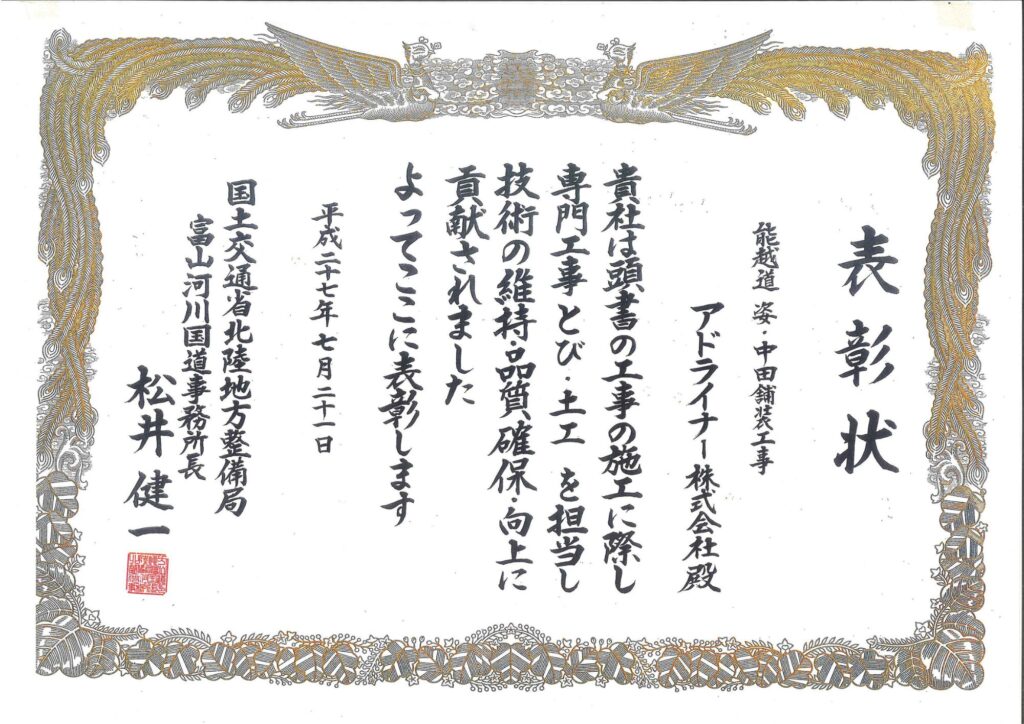 表彰状
能越道 姿・中田舗装工事
アドライナー株式会社殿
貴社は頭書の工事の施工に際し
専門工事とび・土工 を担当し
技術の維持・品質確保・向上に
貢献されました
よってここに表彰します
平成二十七年七月二十一日
国土交通省北陸地方整備局
富山河川国道事務所長
松井健一